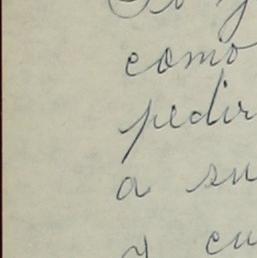 como
pedir
a su
y cu